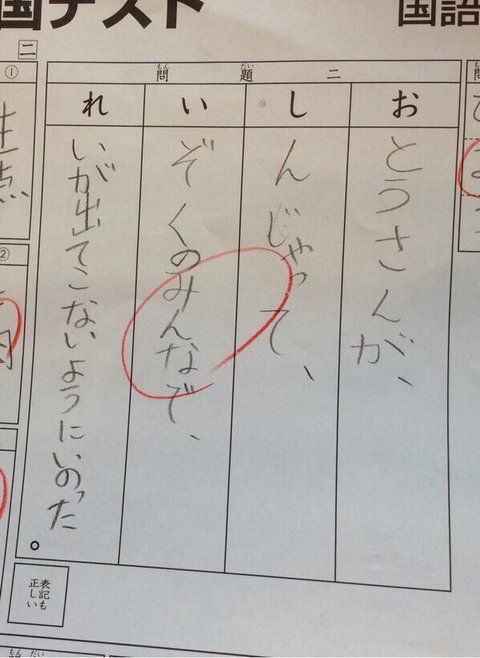 国語
国テスト
問
問題二
もん だい
おとうさんが、
しんじゃって、
いぞくのみんなで、
れいが出てこないようにいのった。
表記も
正しい
二
①
②
もん だい